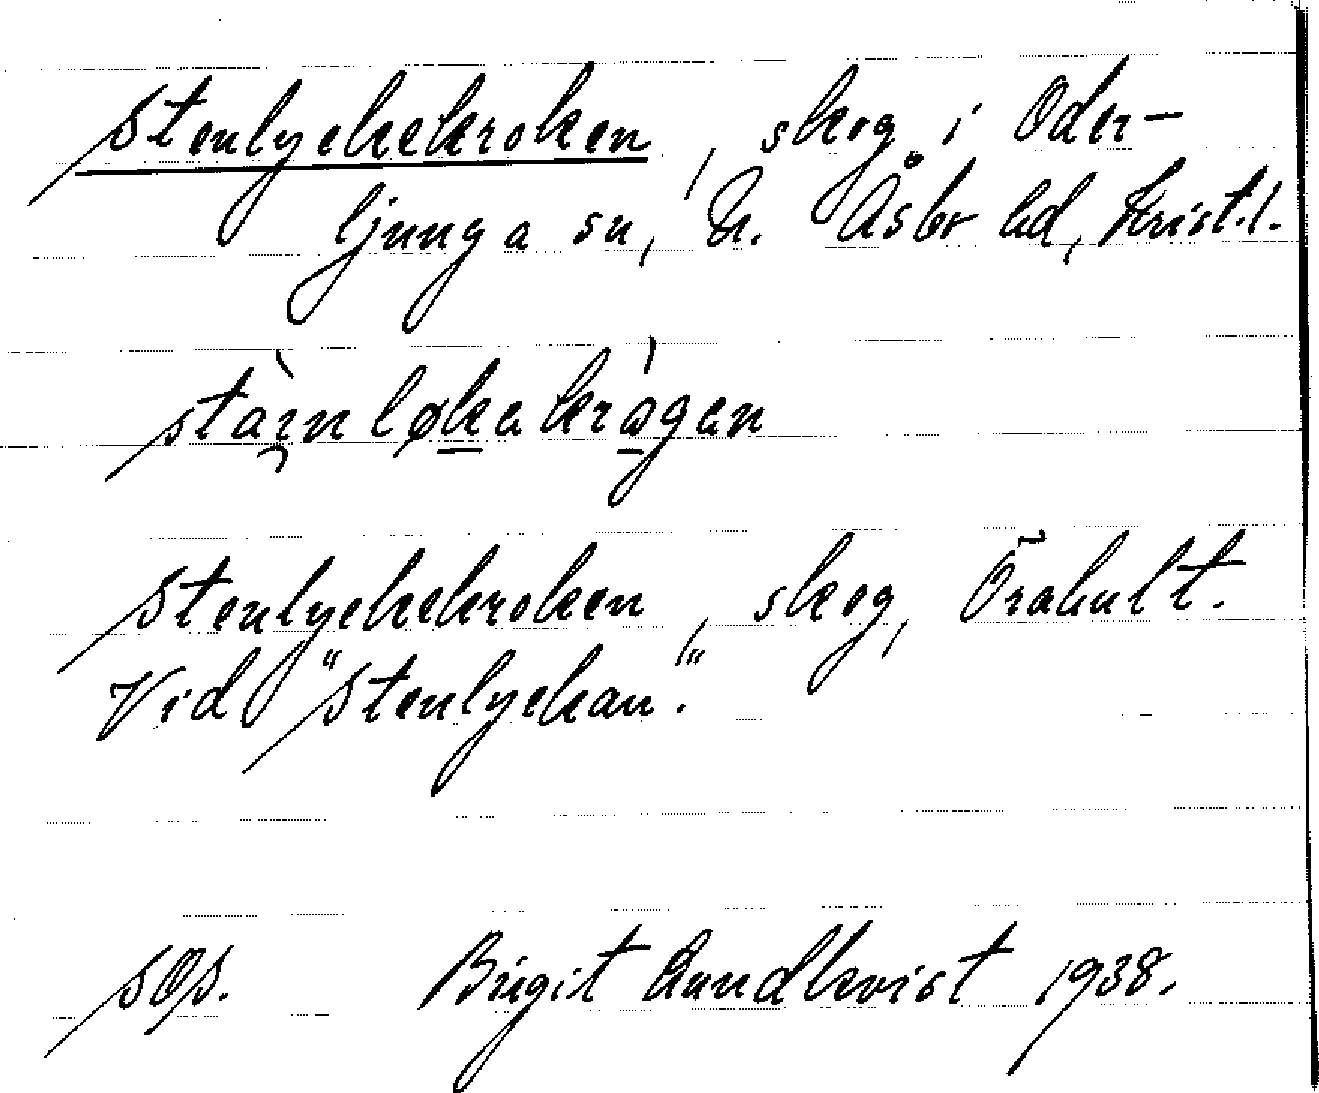 Stenlyckekroken, skog i Oder-
ljunga sn, N. Åsbo hd, Krist.l.
stàinløkekrògen
Stenlyckekroken, skog, Örahult.
Vid "Stenlyckan".
SOS. Birgit Lundkvist 1938.